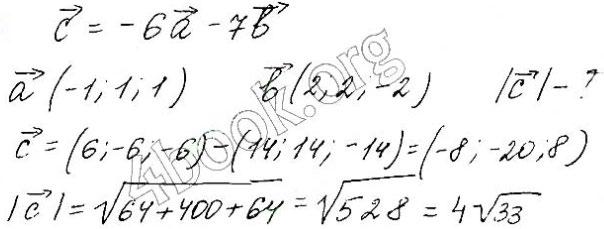 c⃗ = -6a⃗ - 7b⃗
a⃗ (-1; 1; 1) b⃗ (2; 2; -2) |c⃗| - ?
c⃗ = (6; -6; -6) - (14; 14; -14) = (-8; -20; 8)
|c⃗| = √64+400+64 = √528 = 4√33
4book.org